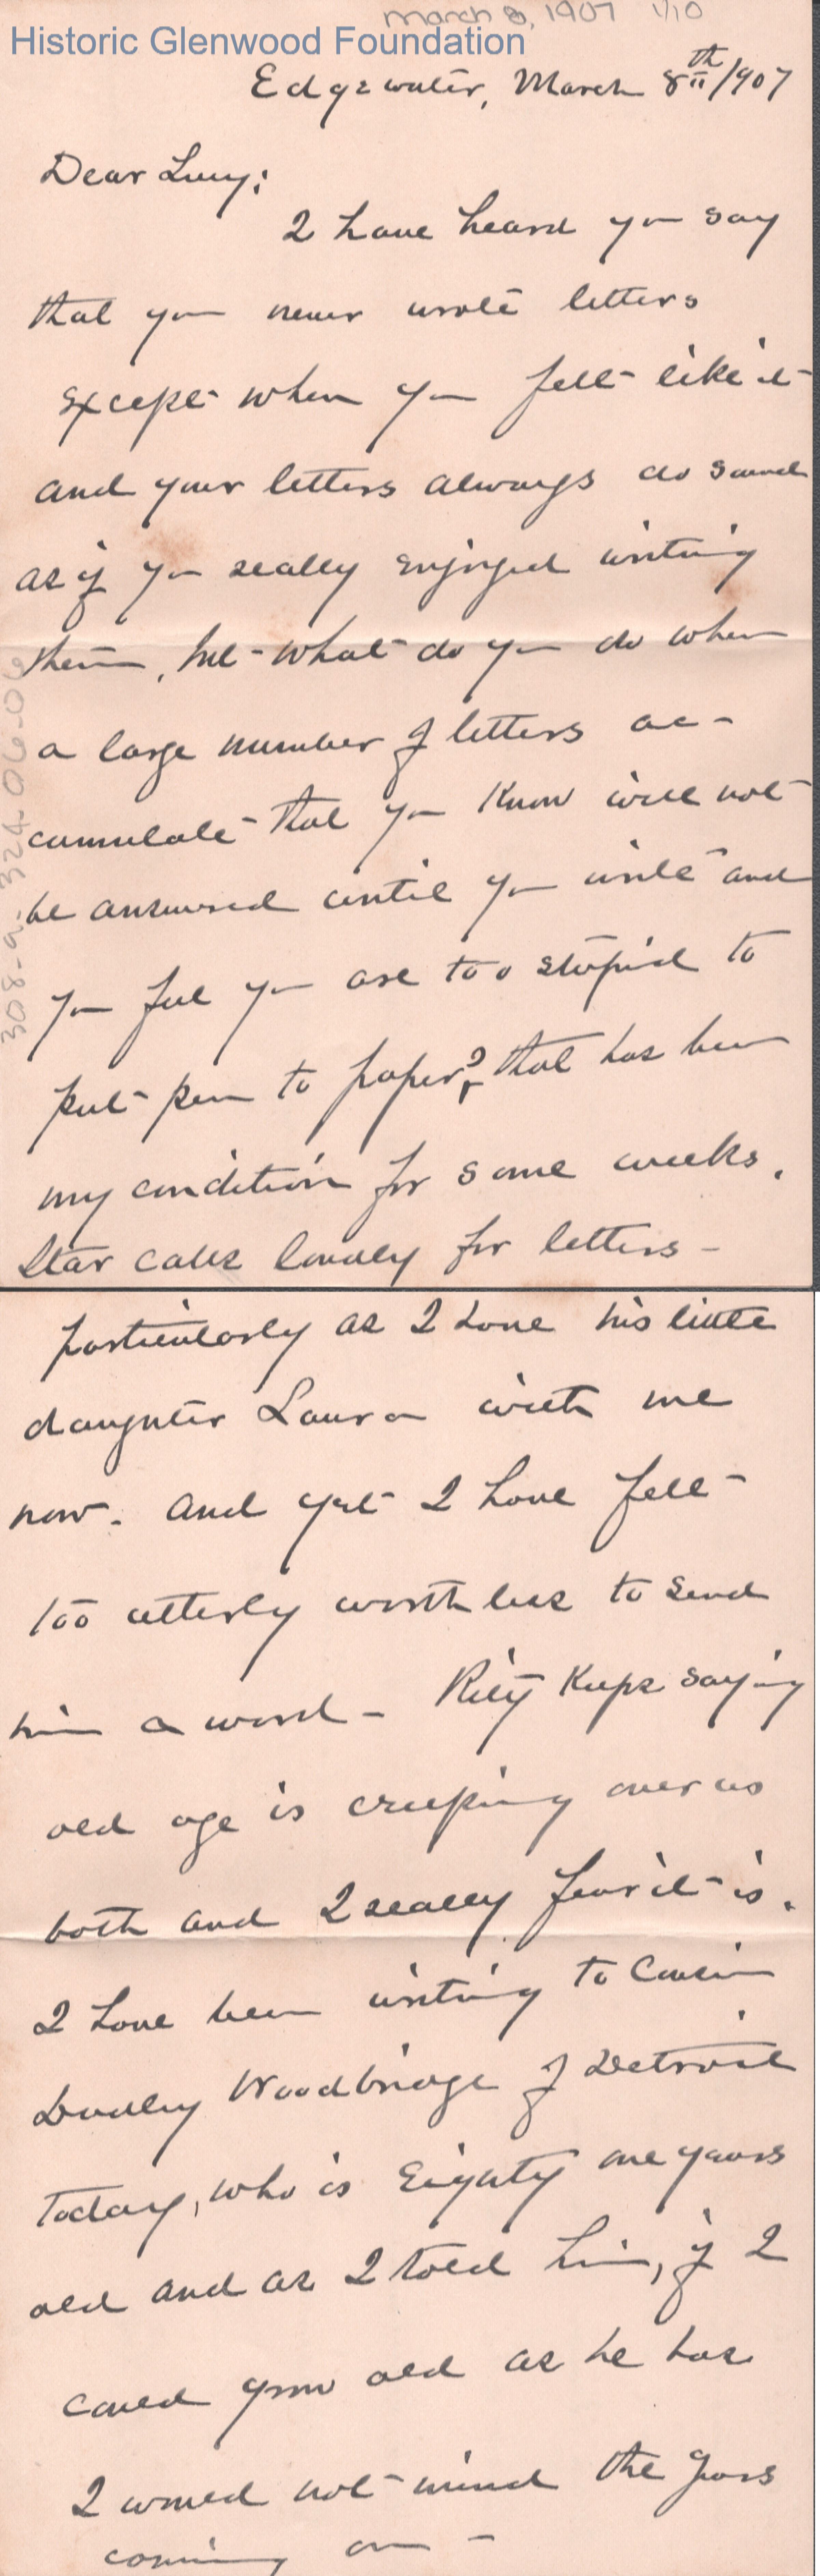 March 8, 1907 1/10
Historic Glenwood Foundation
Edgewater, March 8th/907
Dear Lucy:
I have heard you say
that you never wrote letters
except when you felt like it
and your letters always do sound
as if you really enjoyed writing
them, but what do you do when
a large number of letters ac-
cumulate that you know will not
be answered until you write and
you feel you are too stupid to
put pen to paper? that has been
my condition for some weeks.
Star calls loudly for letters -
particularly as I have his little
daughter Laura with me
now. And yet I have felt
too utterly worthless to send
him a word - Kitty keeps saying
old age is creeping over us
both and I really fear it is.
I have been writing to Cousin
Dudley Woodbridge of Detroit
today, who is eighty one years
old and as I told him, if I
could grow old as he has
I would not mind the years
coming on -
308-a-324-06-06